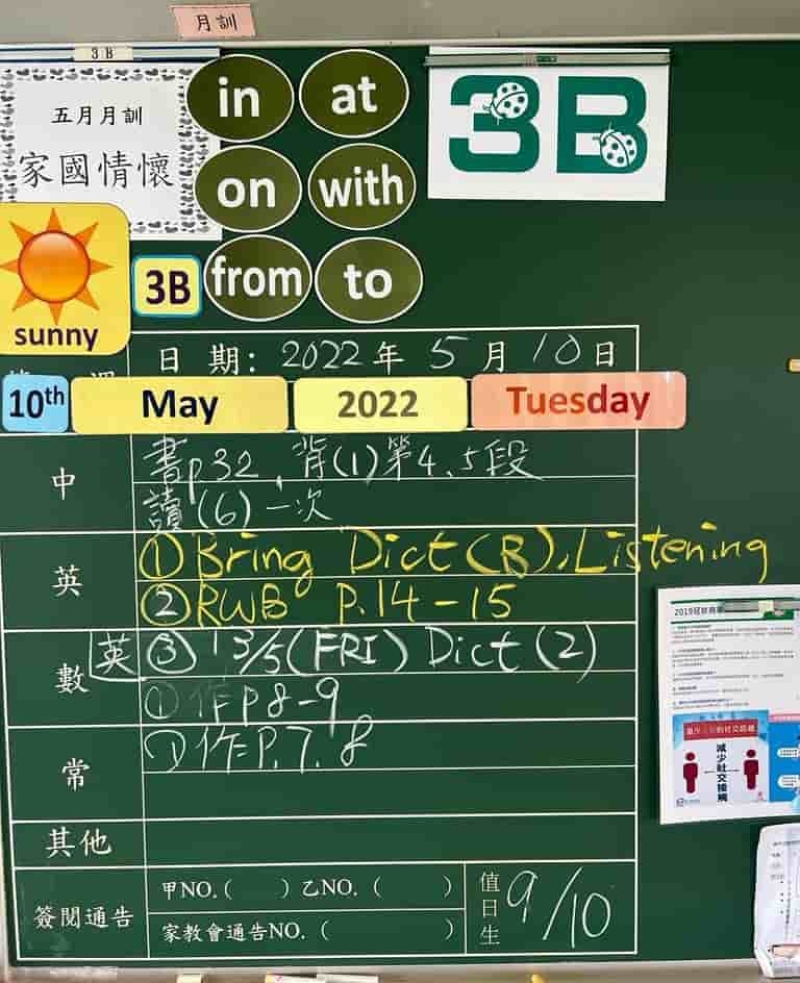 月訓
3B
五月月訓
家國情懷
in at
on with
from to
3B
sunny
3B
日 期: 2022 年 5 月 10 日
10th May 2022 Tuesday
中 書p32, 背(1)第4、5段
讀(6)一次
英 ① Bring Dict(R), Listening
② RWB P.14-15
數 英 ③ 13/5(FRI) Dict (2)
① 作P8-9
常 ① 作P.7、8
其他
簽閱通告 甲NO.( ) 乙NO. ( )
家教會通告NO. ( )
值日生 9/10
減少社交接觸